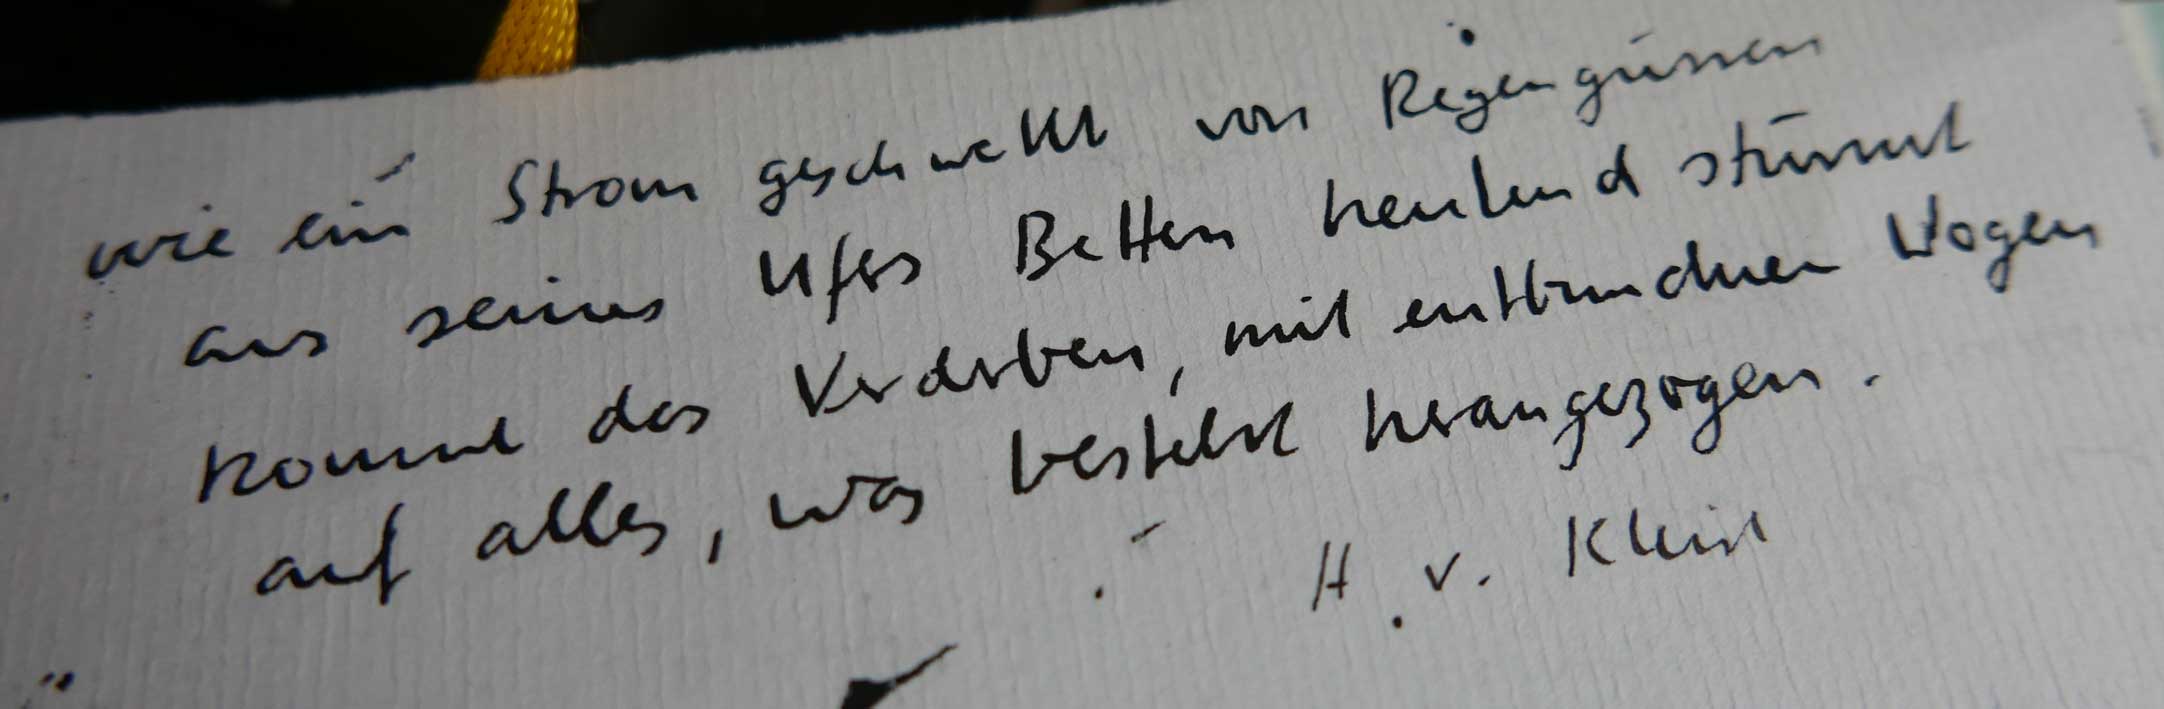 wie ein Strom geschwellt von Regengüssen
aus seines Ufers Betten heulend stürmt
kommt das Verderben, mit entbundnen Wogen
auf alles, was besteht herangezogen.
H. v. Kleist